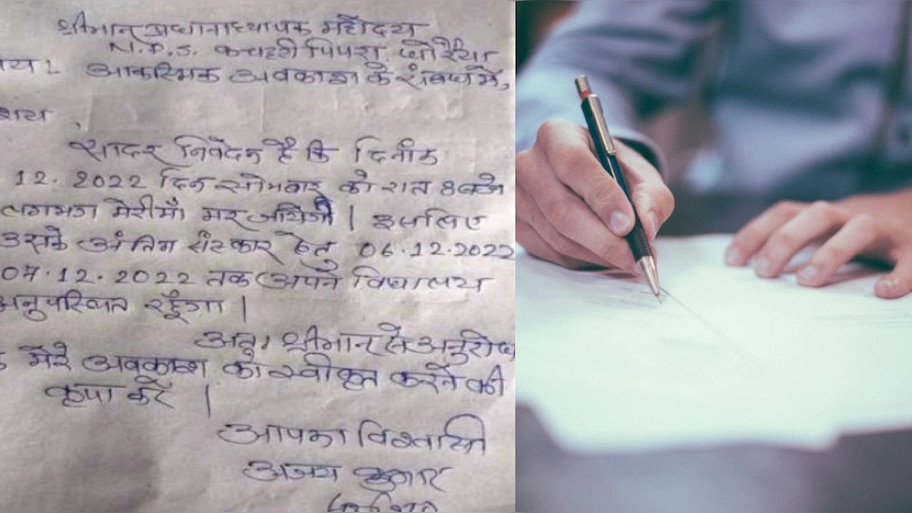 श्रीमान् प्रधानाध्यापक महोदय
N.P.S. कचहरी पिपरा, धोरैया
आकस्मिक अवकाश के संबंध में,
सादर निवेदन है कि दिनांक
12. 2022 दिन सोमवार को रात 8 बजे
लगभग मेरी माँ मर जायेगी। इसलिए
उसके अंतिम संस्कार हेतु 06.12.2022
07.12.2022 तक अपने विद्यालय
अनुपस्थित रहूँगा।
अतः श्रीमान् से अनुरोध
मेरे अवकाश को स्वीकृत करने की
कृपा करें।
आपका विश्वासी
अजय कुमार